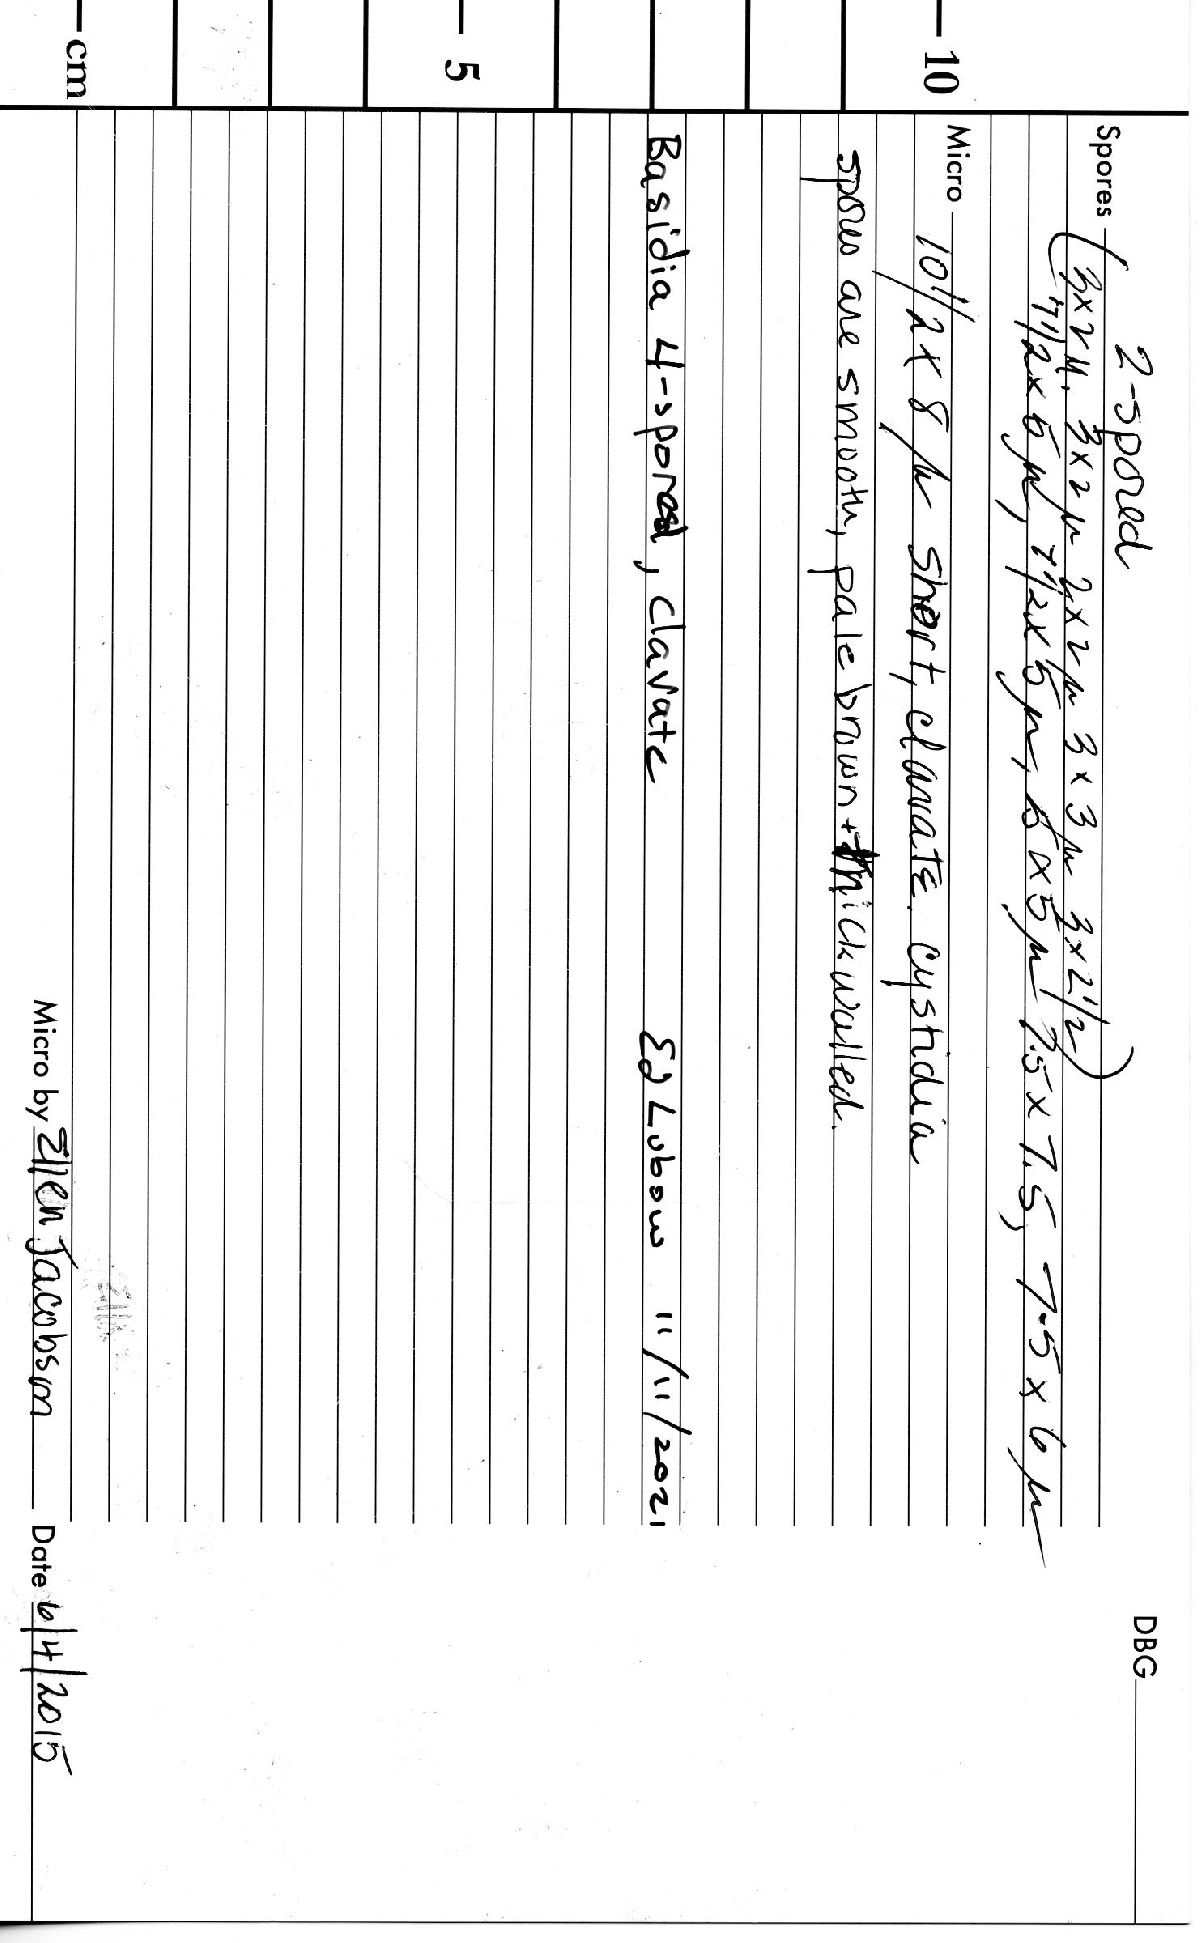 DBG
2-spored
Spores (3x2 µ. 3x2 µ 3x2 µ 3 x 3 µ 3x2 1/2)
7 1/2 x 5 µ, 7 1/2 x 5 µ, 5 x 5 µ 7.5 x 7.5, 7.5 x 6 µ
Micro
10 1/2 x 8 µ short, clavate cystidia
spores are smooth, pale brown + thickwalled.
Basidia 4-spored, clavate Ed Lubow 11/11/2021
Micro by Ellen Jacobson Date 6/4/2015
cm 5 10